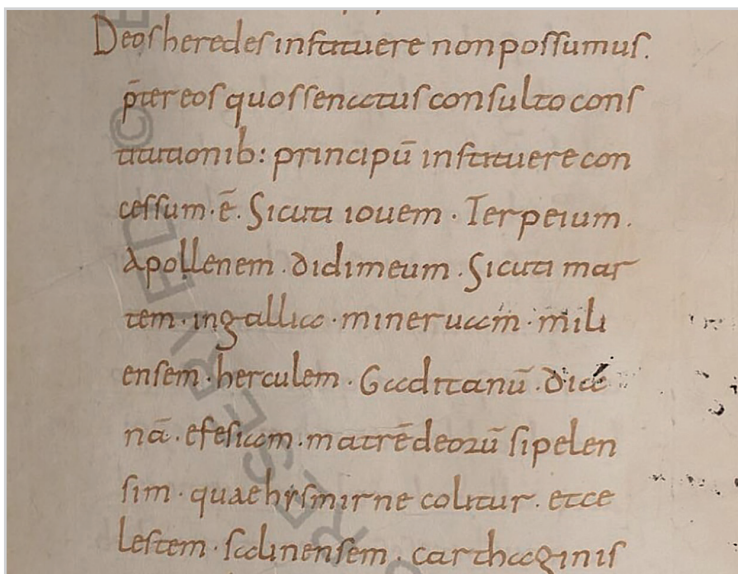 Deos heredes instituere non possumus.
p̄ter eos quos senatus consulto cons
titutionib: principū instituere con
cessum · ē. Sicuti iouem · Terpeium.
apollenem · didimeum · Sicuti mar
tem · in gallia · mineruam · mili
ensem · herculem · Gaditanū · dia
nā · efesiam · matrē deorū sipelen
sim · quae hysmirne colitur · et ce
lestem · salinensem · carthaginis